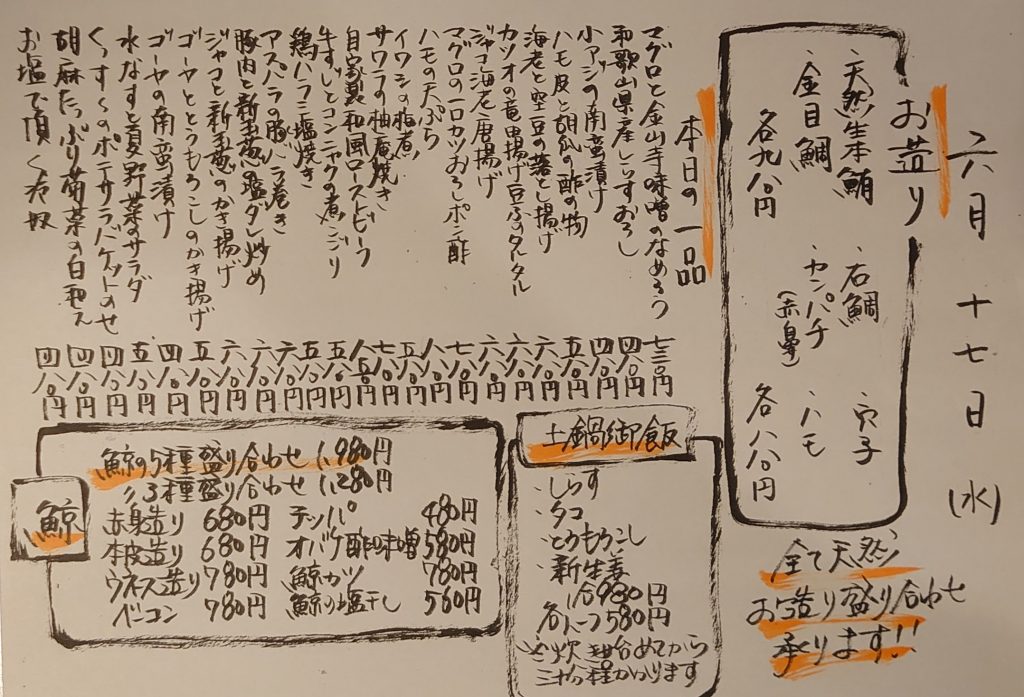 六月十七日(水)
お造り
・天然生本鮪
・金目鯛
各九八〇円
・石鯛
・カンパチ
(赤鼻)
・穴子
・ハモ
各八八〇円
全て天然
お造り盛り合わせ
承ります!!
本日の一品
マグロと金山寺味噌のなめろう 七三〇円
和歌山県産しらすおろし 四八〇円
小アジの南蛮漬け 四八〇円
ハモ皮と胡瓜の酢の物 五八〇円
海老と空豆の落とし揚げ 六八〇円
カツオの竜田揚げ豆ふのタルタル 六八〇円
ジャコ海老唐揚げ 六八〇円
マグロの一口カツおろしポン酢 七八〇円
ハモの天ぷら 八八〇円
イワシの梅煮 五八〇円
サワラの柚庵焼き 七八〇円
自家製和風ローストビーフ 八五〇円
牛すじとコンニャクの煮こごり 五八〇円
鶏ハラミ塩焼き 五八〇円
アスパラの豚バラ巻き 六八〇円
豚肉と新玉葱の塩ダレ炒め 六八〇円
ジャコと新玉葱のかき揚げ 六八〇円
ゴーヤととうもろこしのかき揚げ 五八〇円
ゴーヤの南蛮漬け 四八〇円
水なすと夏野菜のサラダ 五八〇円
くんすーのポテサラバケットのせ 四八〇円
胡麻たっぷり菊菜の白和え 四八〇円
お塩で頂く冷奴 四八〇円
土鍋御飯
・しらす
・タコ
・とうもろこし
・新生姜
一合980円
各ハーフ580円
☆炊き始めてから
三十分程かかります
鯨
鯨の5種盛り合わせ 1,980円
〃3種盛り合わせ 1,280円
赤身造り 680円
本皮造り 680円
ウネス造り 780円
ベーコン 780円
テッパ 480円
オバケ酢味噌 580円
鯨カツ 780円
鯨の塩干し 560円